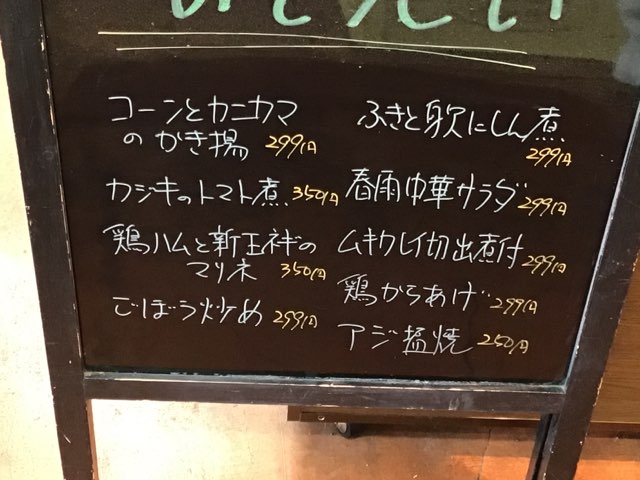 コーンとカニカマ
のかき揚 299円
カジキのトマト煮 350円
鶏ハムと新玉ネギの
マリネ 350円
ごぼう炒め 299円
ふきと身欠にしん煮
299円
春雨中華サラダ 299円
ムキカレイ切出煮付 299円
鶏からあげ 299円
アジ塩焼 250円